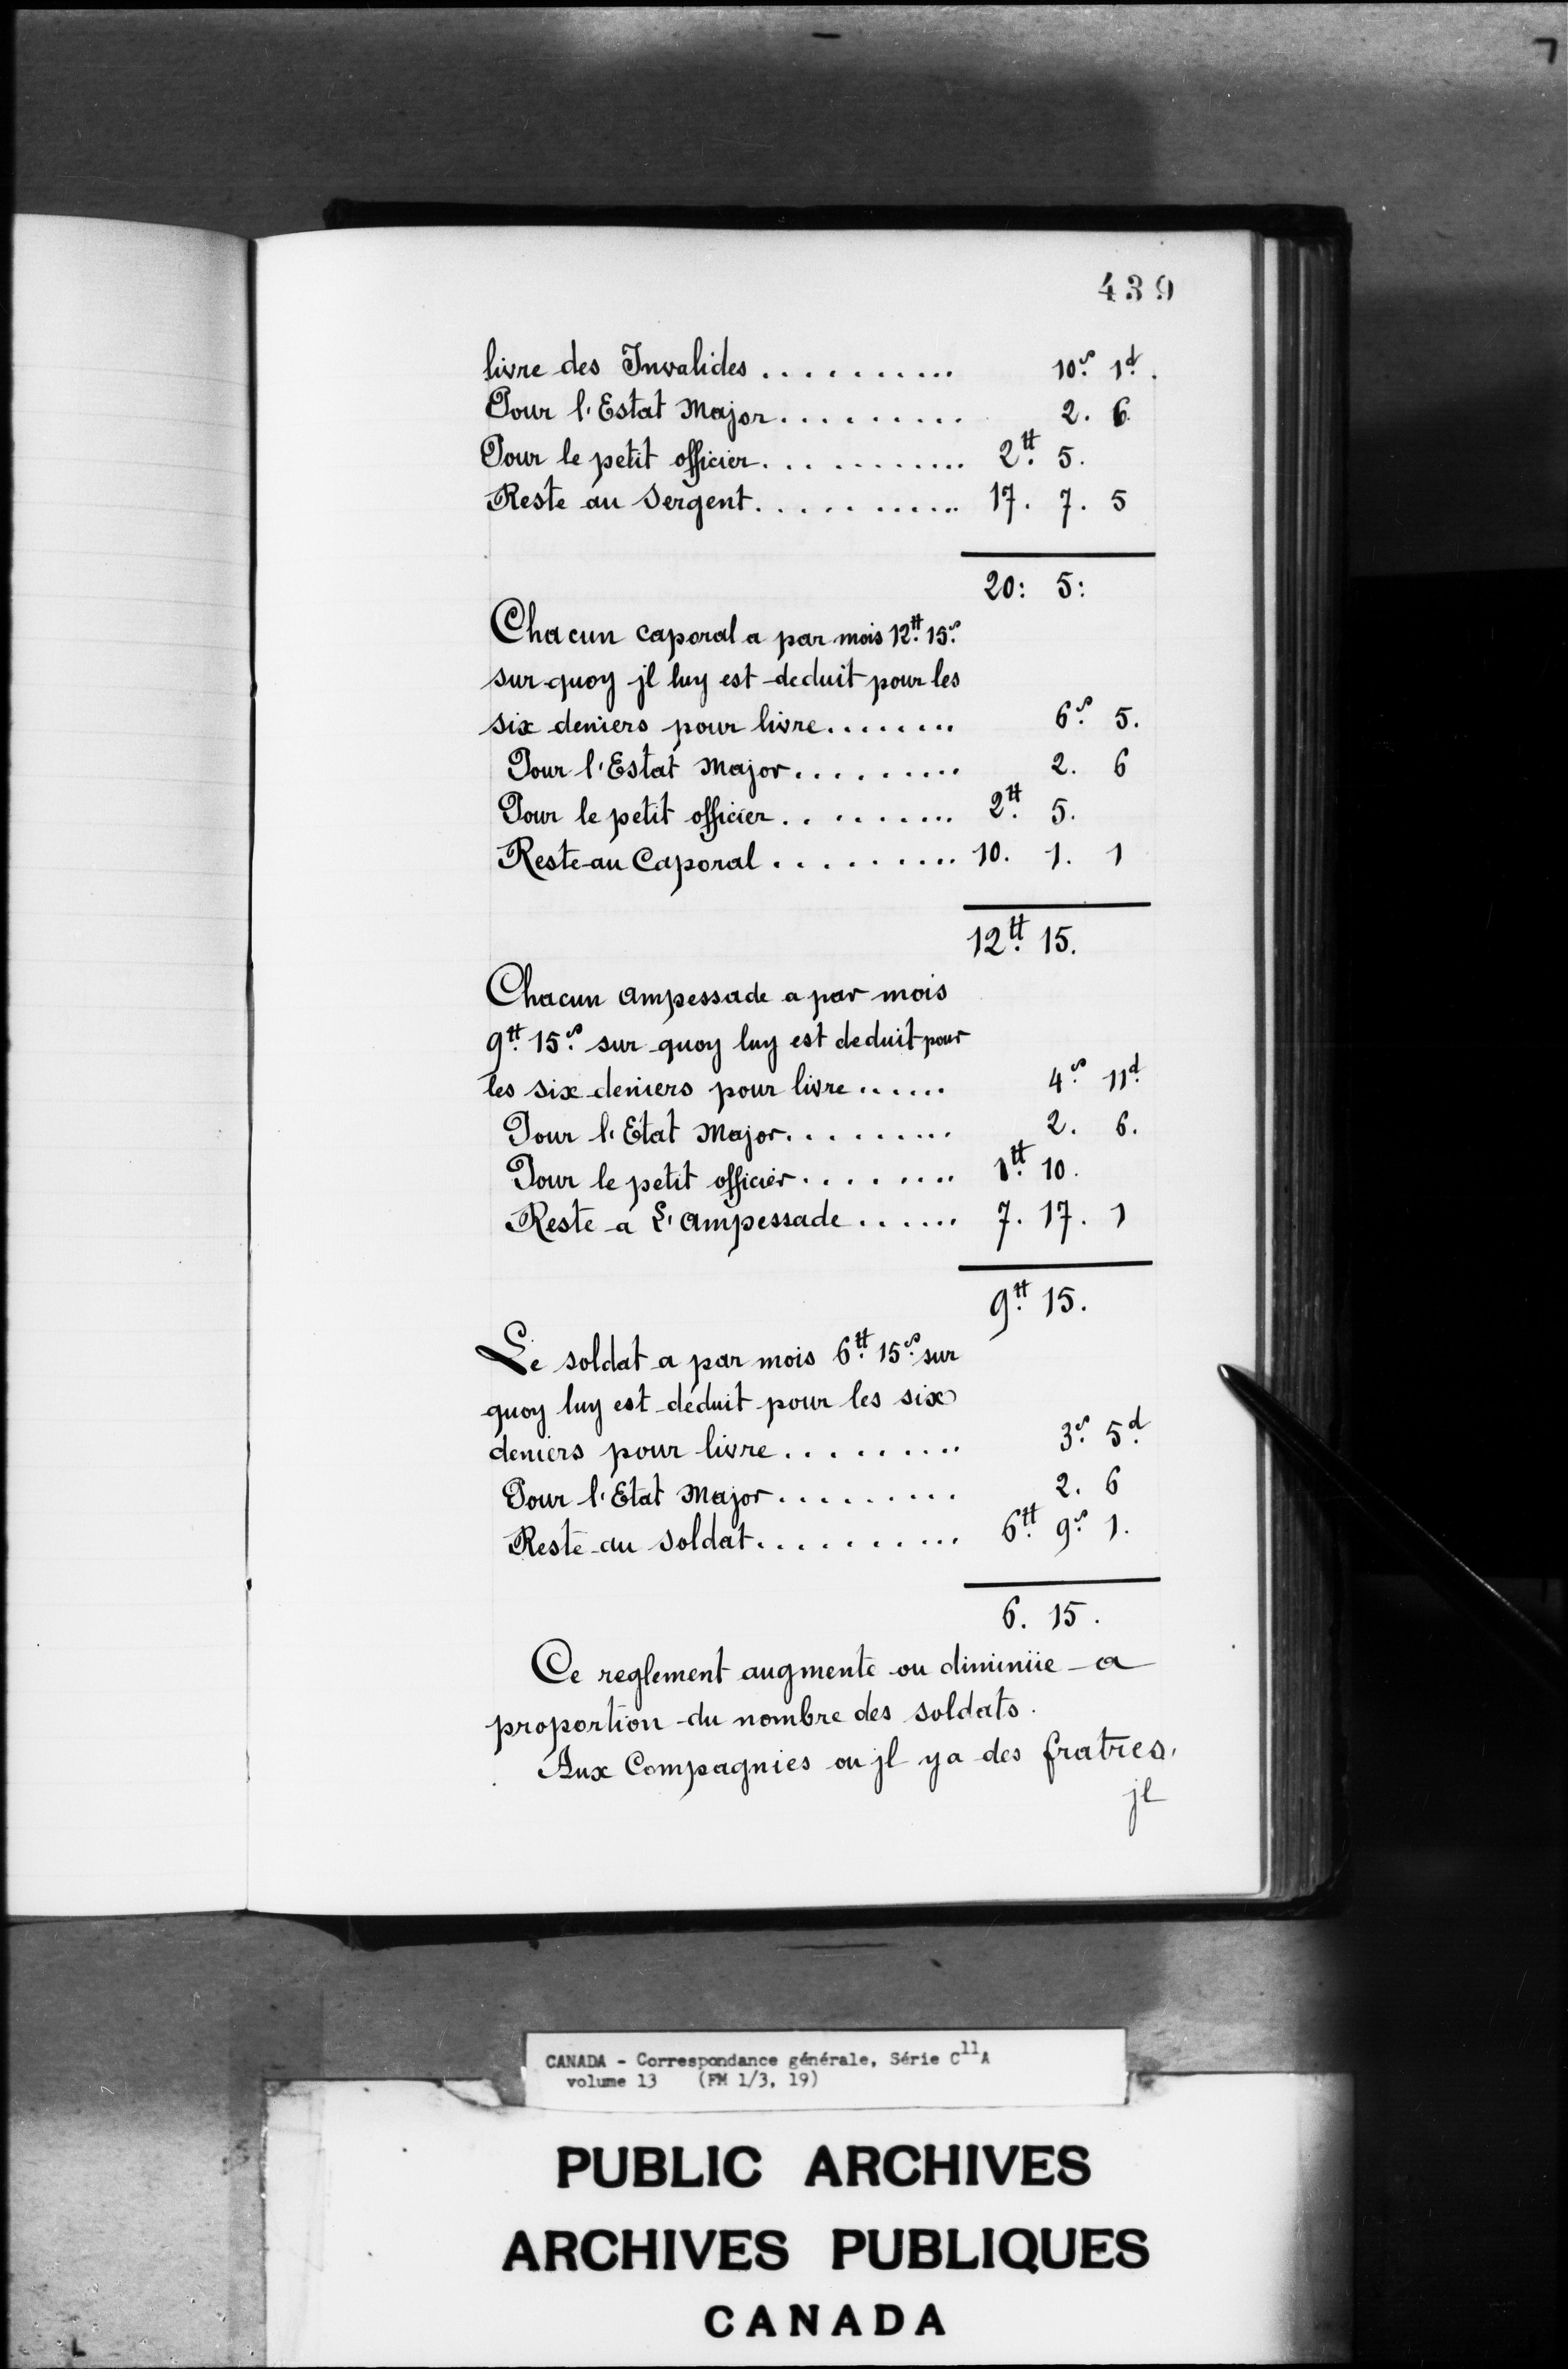 439
livre des Invalides........... 10.s 1.d
Pour l'Estat Major.......... 2. 6.
Pour le petit officier............ 2.tt 5.
Reste au Sergent............ 17. 7. 5
20: 5:
Chacun caporal a par mois 12.tt 15.s
sur quoy jl luy est deduit pour les
six deniers pour livre........ 6.s 5.
Pour l'Estat Major.......... 2. 6
Pour le petit officier.......... 2.tt 5.
Reste au Caporal.......... 10. 1. 1
12.tt 15.
Chacun ampessade a par mois
9.tt 15.s sur quoy luy est deduit pour
les six deniers pour livre...... 4.s 11.d
Pour l'Etat Major......... 2. 6.
Pour le petit officier......... 1.tt 10.
Reste a L'ampessade...... 7. 17. 1
9.tt 15.
Le soldat a par mois 6.tt 15.s sur
quoy luy est déduit pour les six
deniers pour livre.......... 3.s 5.d
Pour l'Etat Major......... 2. 6
Reste au soldat........... 6.tt 9.s 1.
6. 15.
Ce reglement augmente ou diminüe a
proportion du nombre des soldats.
Aux Compagnies ou jl y a des fratres,
jl
CANADA - Correspondance générale, Série C11A
volume 13 (FM 1/3, 19)
PUBLIC ARCHIVES
ARCHIVES PUBLIQUES
CANADA